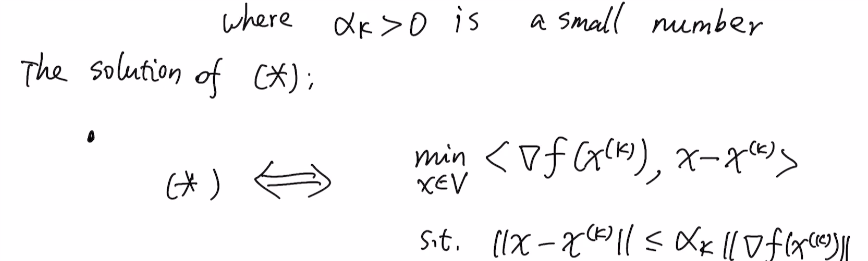 where αₖ>0 is a small number
The solution of (*);
• (*) ⟺ min <∇f(x⁽ᵏ⁾), x-x⁽ᵏ⁾>
x∈V
s.t. ||x-x⁽ᵏ⁾|| ≤ αₖ||∇f(x⁽ᵏ⁾)||